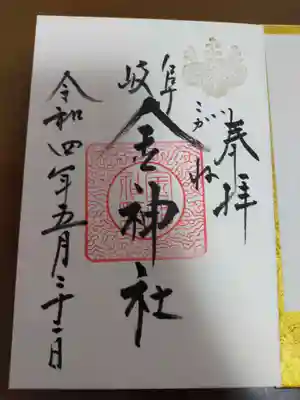 奉拝
こがね
岐阜
金神社
令和四年五月二十二日